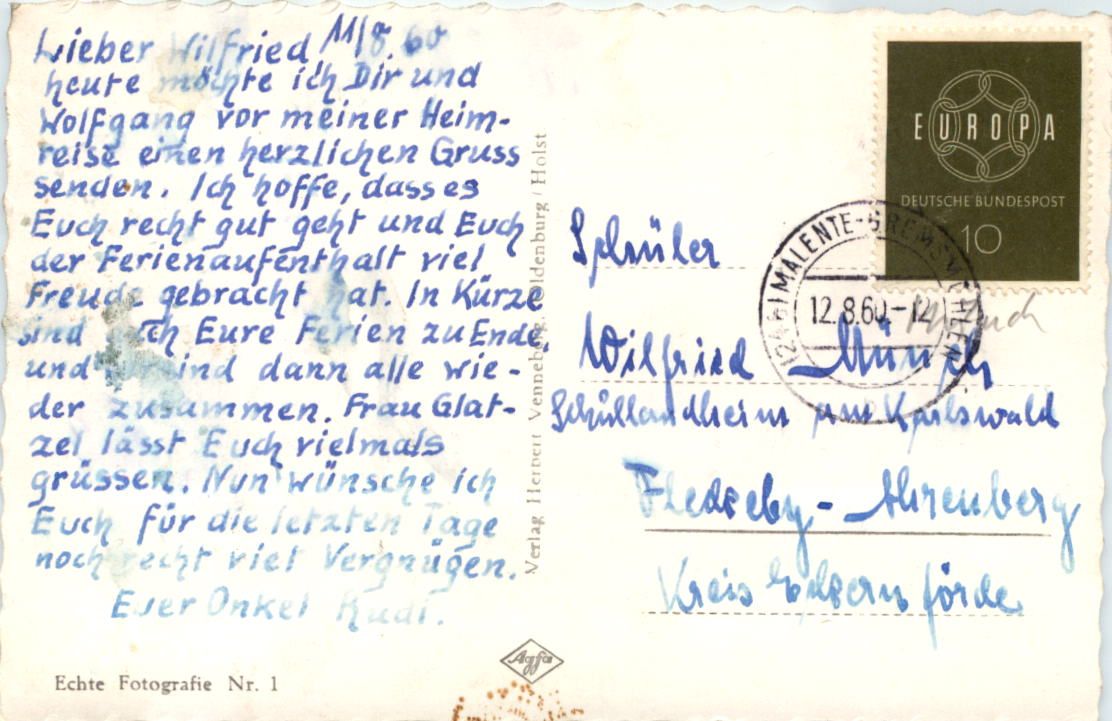 Lieber Wilfried, 11/8.60
heute möchte ich Dir und
Wolfgang vor meiner Heim-
reise einen herzlichen Gruss
senden. Ich hoffe, dass es
Euch recht gut geht und Euch
der Ferienaufenthalt viel
Freude gebracht hat. In Kürze
sind Eure Ferien zu Ende,
und sind dann alle wie-
der zusammen. Frau Glat-
zel lässt Euch vielmals
grüssen. Nun wünsche ich
Euch für die letzten Tage
noch recht viel Vergnügen.
Euer Onkel Rudi.
Echte Fotografie Nr. 1
Verlag Herbert Venneberg, Oldenburg / Holst
Agfa
EUROPA
DEUTSCHE BUNDESPOST
10
MALENTE-GREMSMÜHLEN
12.8.60.-12
Schüler
Wilfried Münch
Schullandheim am Karlswald
Fleckeby - Ahrenberg
Kreis Eckernförde